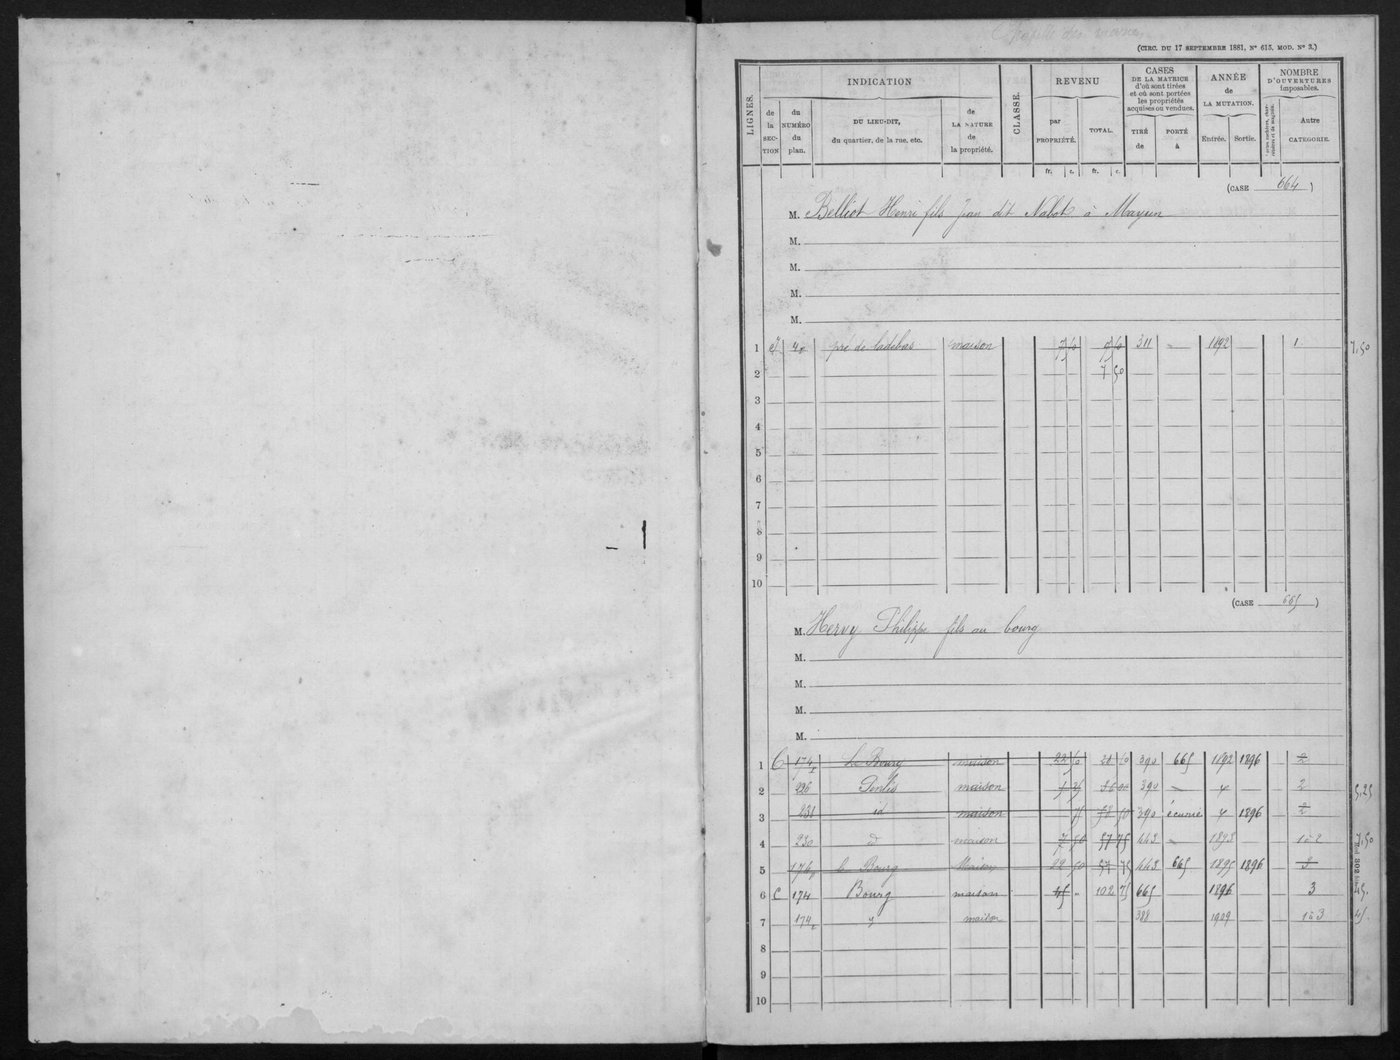 (CIRC. DU 17 SEPTEMBRE 1881, N° 615, MOD. N° 3.)
LIGNES. INDICATION CLASSE. REVENU CASES DE LA MATRICE d'où sont tirées et où sont portées les propriétés acquises ou vendues. ANNÉE de LA MUTATION. NOMBRE D'OUVERTURES imposables.
de la SECTION du NUMÉRO du plan. DU LIEU-DIT, du quartier, de la rue, etc. de LA NATURE de la propriété. par PROPRIÉTÉ. TOTAL. TIRÉ de PORTÉ à Entrée. Sortie. Autre CATEGORIE.
fr. c. fr. c.
(CASE 664)
M. Belliot Henri fils Jean dit Nabot à Mayun
M.
M.
M.
M.
1 pré de maison 311 1892 1 7,50
2 7 50
3
4
5
6
7
8
9
10
(CASE 665)
M. Hervy Philippe fils au bourg
M.
M.
M.
M.
1 C 174 Le Bourg maison 22 50 390 665 1892 1896 2
2 236 maison 390 2 5,25
3 231 id maison 75 390 1896 2
4 230 d maison 7 50 57 75 443 1893 1à2 7,50
5 174 le Bourg Maison 22 50 57 75 443 665 1895 1896 3
6 C 174 Bourg maison 45 " 102 75 665 1896 3 45.
7 174 maison 388 1909 1à3 45.
8
9
10